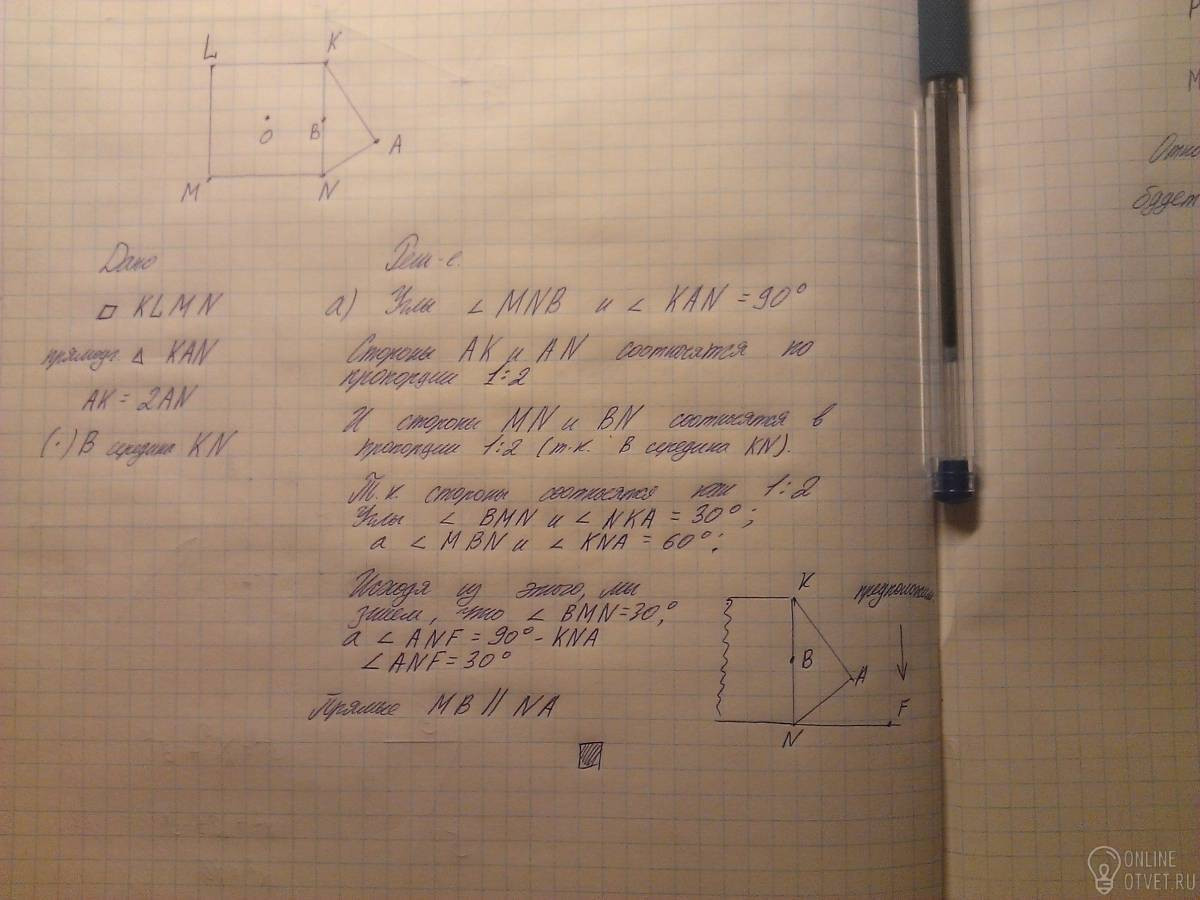 L K
O B A
M N
Дано
□ KLMN
прямоуг. △ KAN
AK = 2AN
(·) B середина KN
Реш-е.
а) Углы ∠ MNB и ∠ KAN = 90°
Стороны AK и AN соотносятся по
пропорции 1:2
И стороны MN и BN соотносятся в
пропорции 1:2 (т.к. B середина KN).
Т.к. стороны соотносятся как 1:2
Углы ∠ BMN и ∠ NKA = 30°;
а ∠ MBN и ∠ KNA = 60°;
Исходя из этого, мы
знаем, что ∠ BMN = 30°,
а ∠ ANF = 90° - KNA
∠ ANF = 30°
Прямые MB || NA
K предположим
B
A
F
N
Р
М
Отно
будет
ONLINE
OTVET.RU